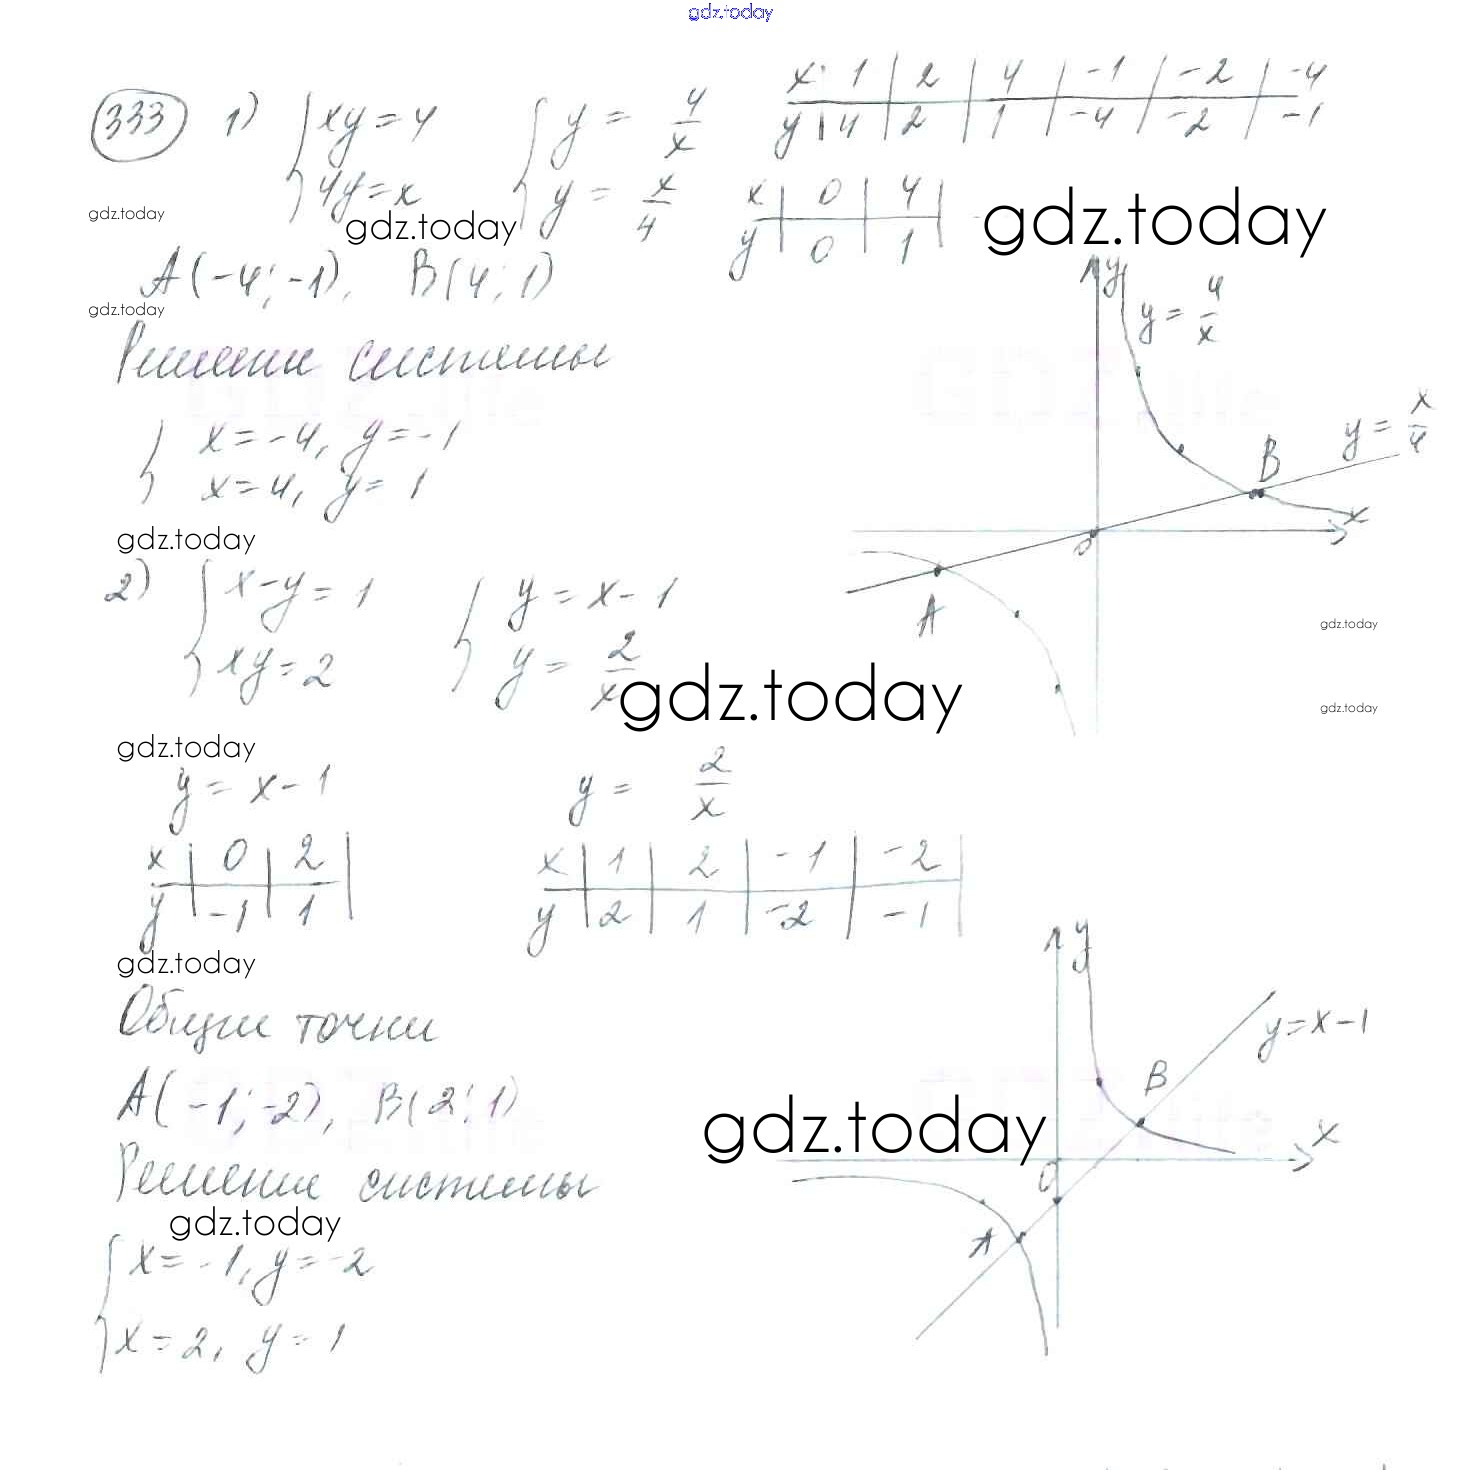 gdz.today
333 1) { xy = 4 { y = 4/x
4y = x y = x/4
x 1 | 2 | 4 | -1 | -2 | -4
y | 4 | 2 | 1 | -4 | -2 | -1
x | 0 | 4 |
y | 0 | 1 |
gdz.today
gdz.today
gdz.today
A(-4; -1), B(4; 1)
gdz.today
Решение системы
{ x = -4, y = -1
x = 4, y = 1
y
y = 4/x
y = x/4
B
x
0
A
gdz.today
2) { x - y = 1 { y = x - 1
xy = 2 y = 2/x
gdz.today
gdz.today
gdz.today
gdz.today
y = x - 1 y = 2/x
x | 0 | 2 |
y | -1 | 1 |
x | 1 | 2 | -1 | -2 |
y | 2 | 1 | -2 | -1 |
gdz.today
Общие точки
A(-1; -2), B(2; 1)
gdz.today
Решение системы
gdz.today
{ x = -1, y = -2
x = 2, y = 1
y
y = x - 1
B
x
0
A